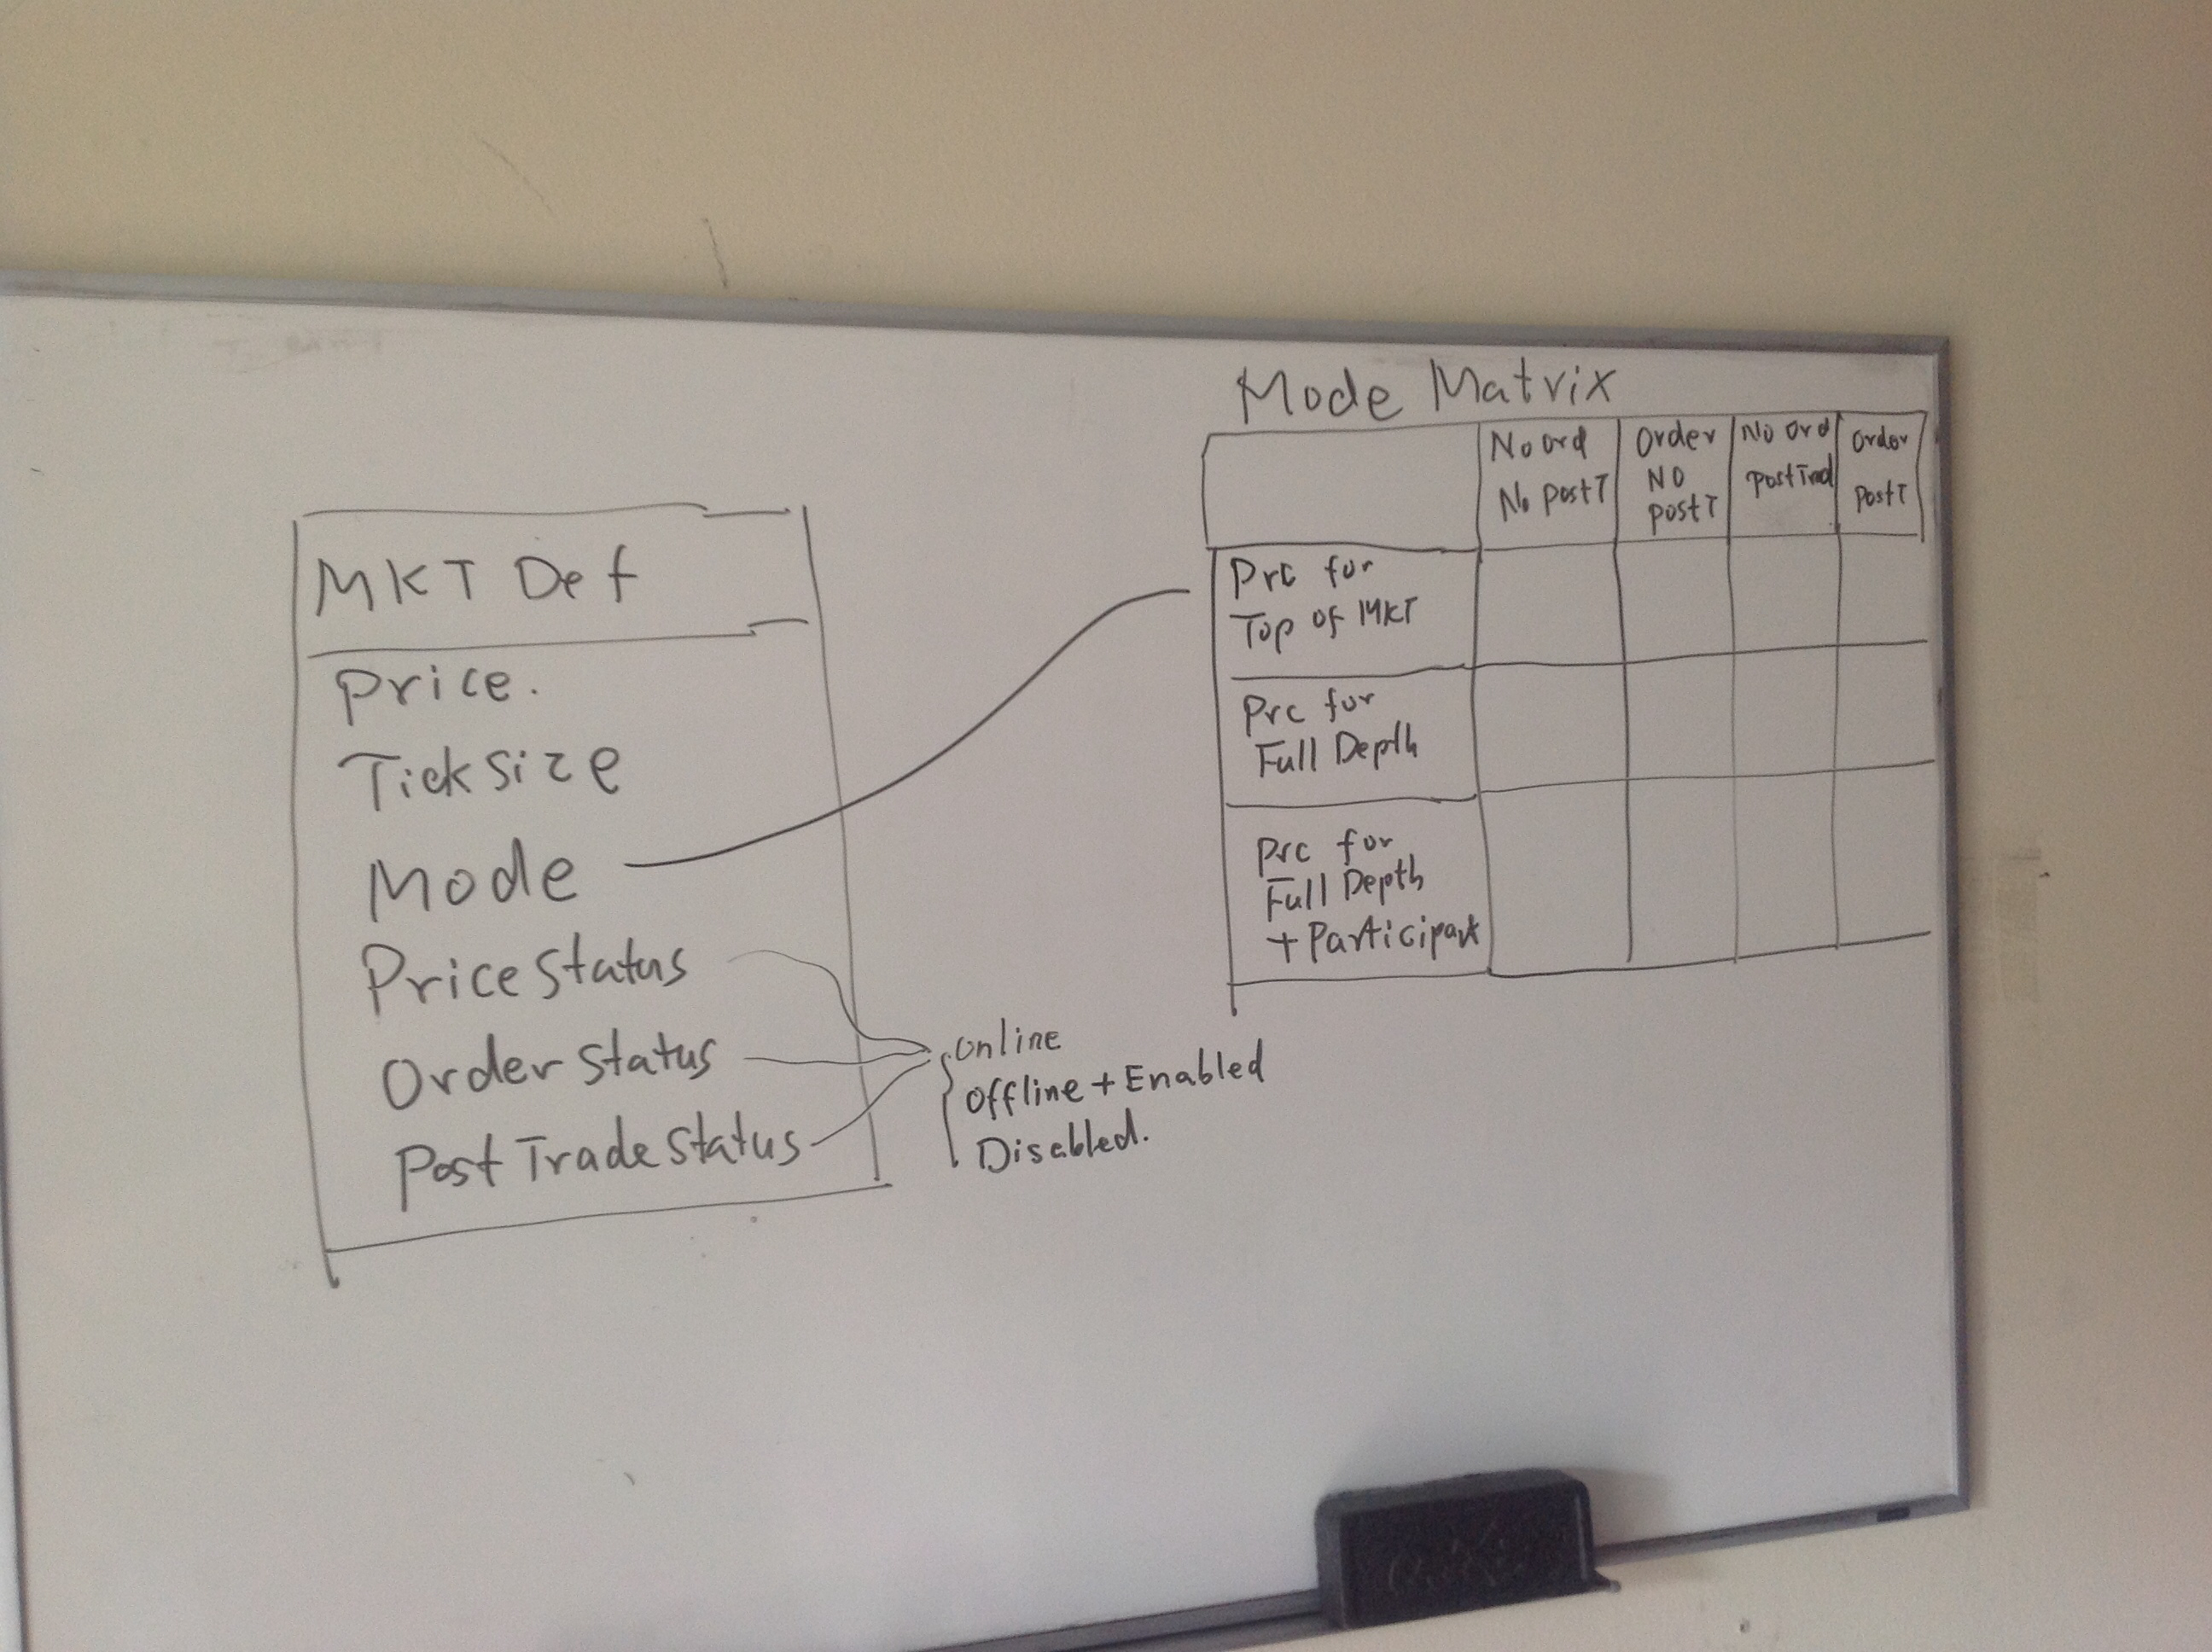 MKT Def
Price.
Tick size
Mode
Price Status
Order Status
Post Trade Status
Online
Offline + Enabled
Disabled.
Mode Matrix
No Ord
No PostT
Order
NO
PostT
No Ord
PostTrad
Order
PostT
Prc for
Top of MKT
Prc for
Full Depth
Prc for
Full Depth
+ Participant